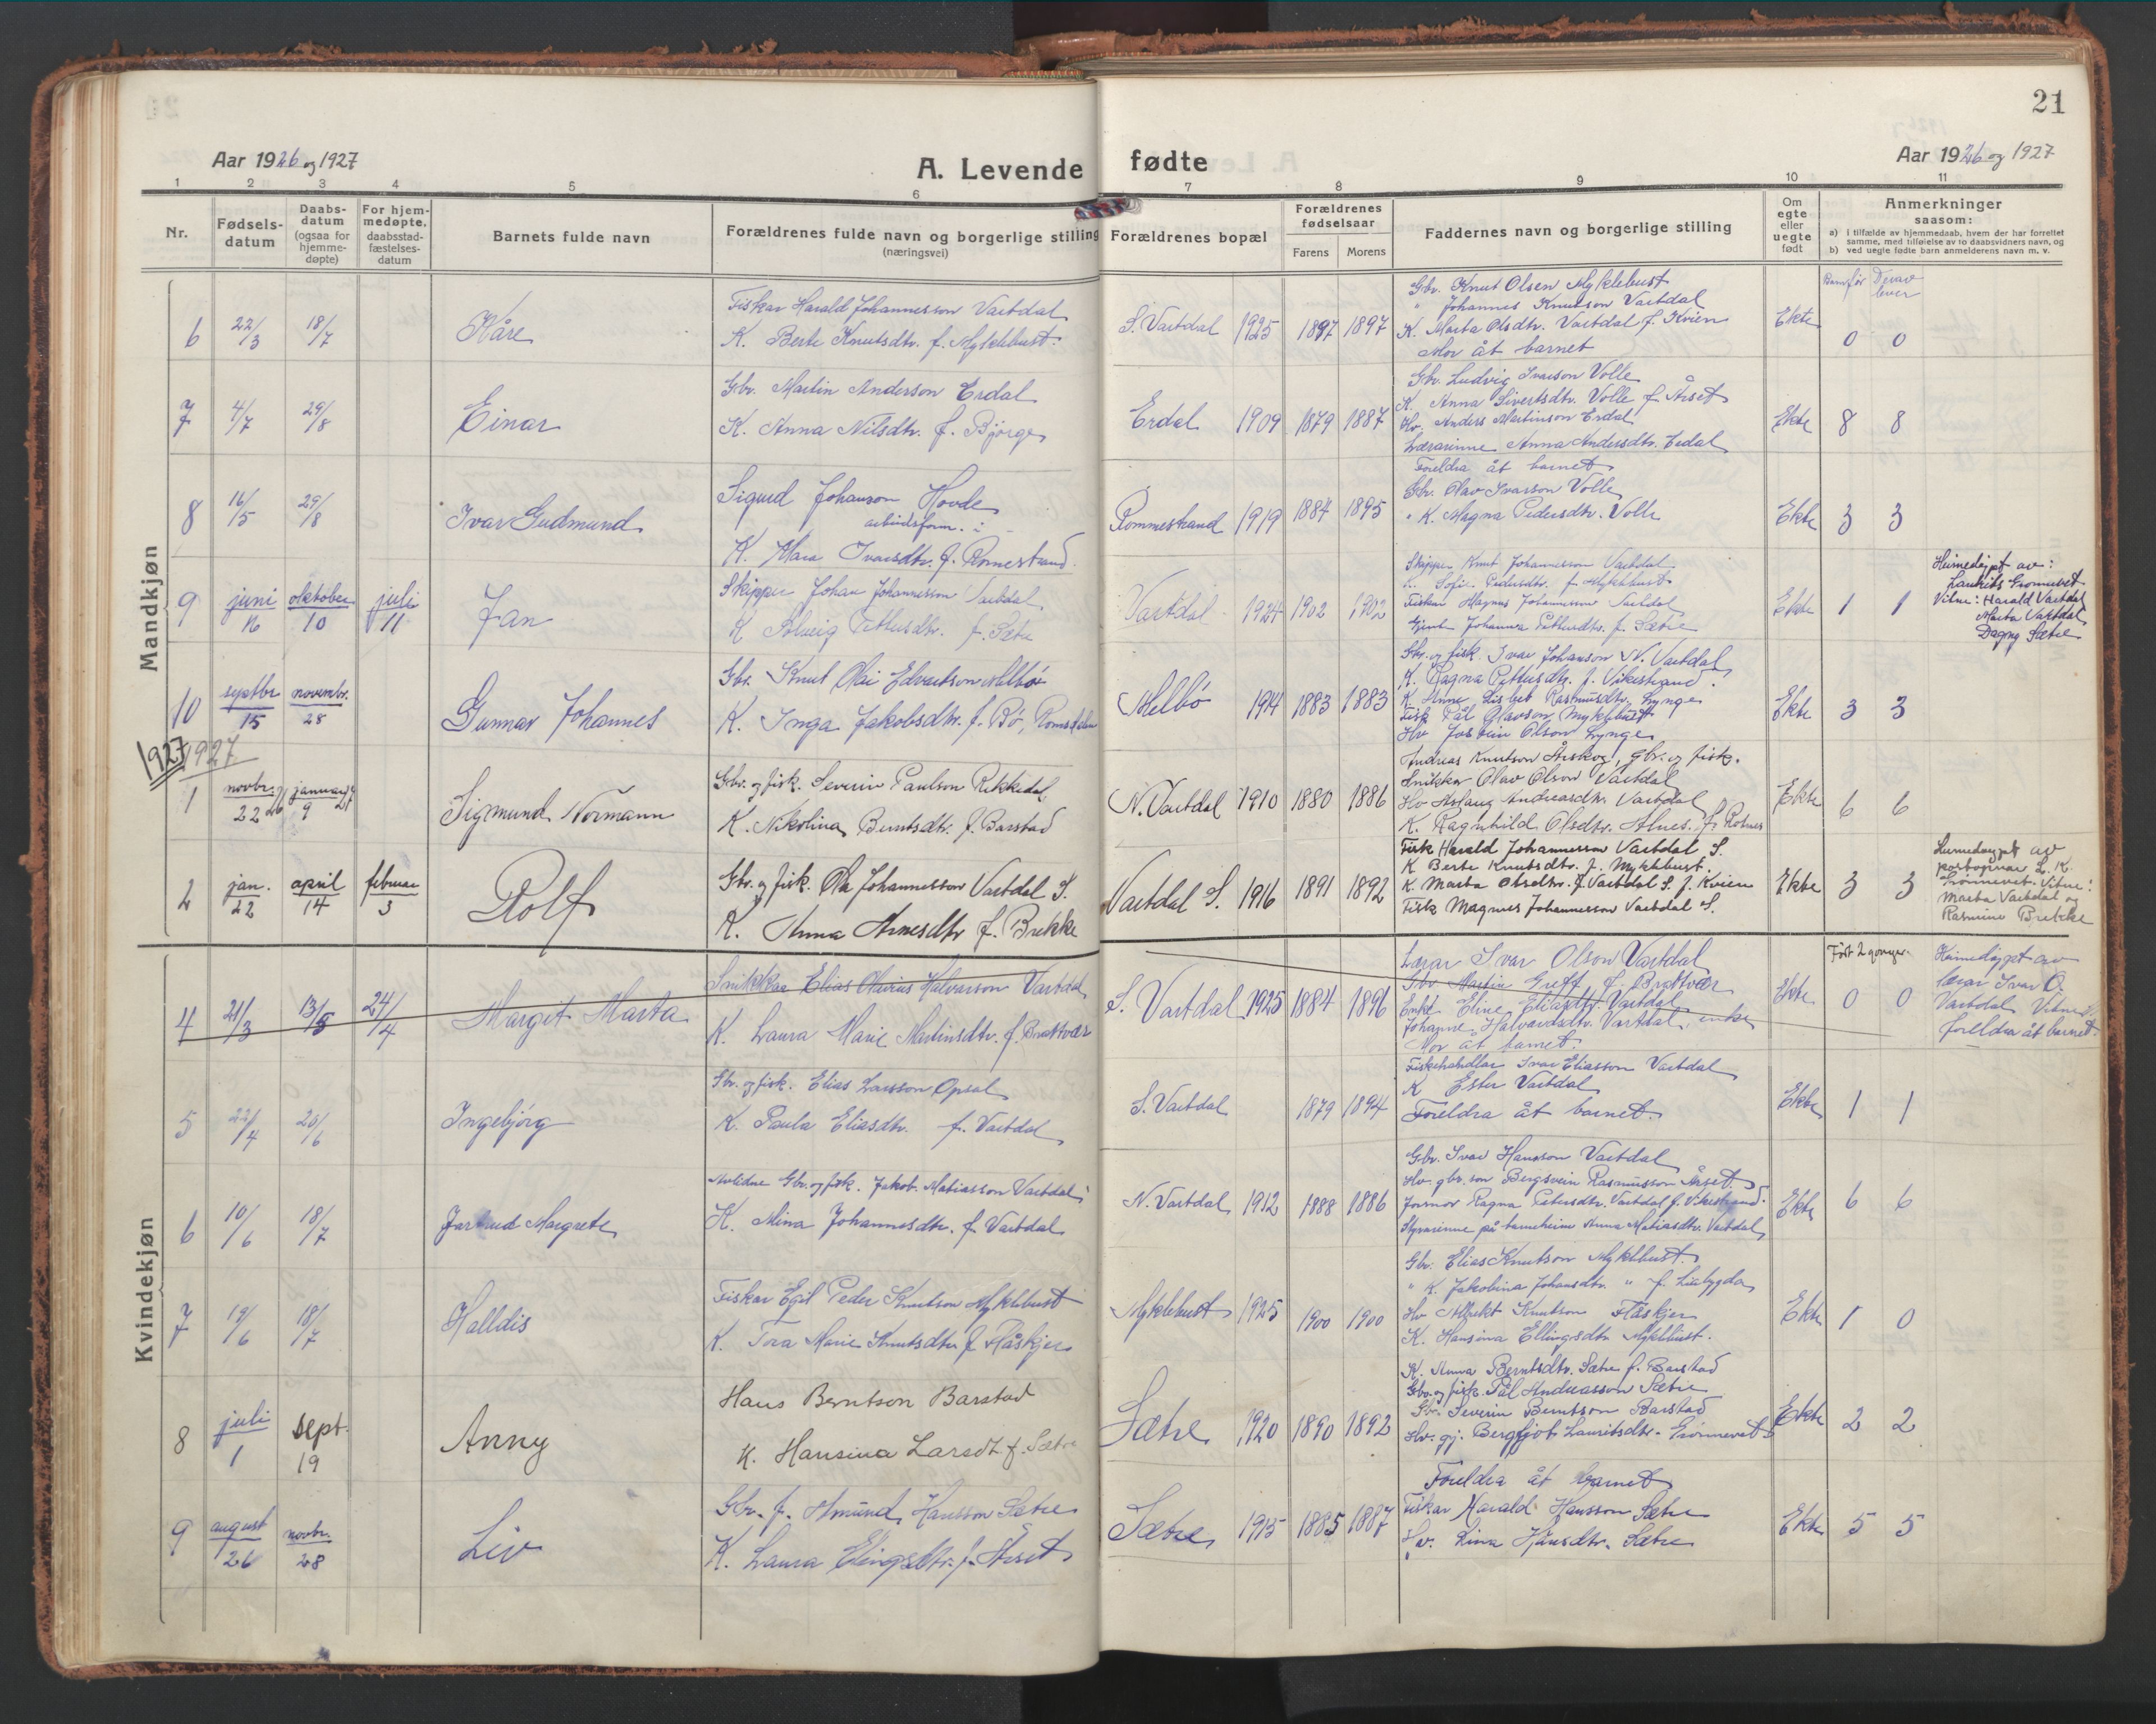 21
Aar 1926 og 1927
A. Levende fødte
Aar 1926 og 1927
1 2 3 4 5 6 7 8 9 10 11
Nr.
Fødsels-
datum
Daabs-
datum
(ogsaa for
hjemme-
døpte)
For hjem-
medøpte,
daabsstad-
fæstelses-
datum
Barnets fulde navn
Forældrenes fulde navn og borgerlige stilling
(næringsvei)
Forældrenes bopæl
Forældrenes
fødselsaar
Farens Morens
Faddernes navn og borgerlige stilling
Om
egte
eller
uegte
født
Anmerkninger
saasom:
a) i tilfælde av hjemmedaab, hvem der har forrettet
samme, med tilføielse av to daabsvidners navn, og
b) ved uegte fødte barn anmelderens navn m. v.
Mandkjøn
6 22/3 18/7 Kåre
Fiskar Harald Johannesson Vartdal
K. Berte Knutsdtr. f. Myklebust
S. Vartdal 1925 1897 1897
Gbr. Knut Olsen Myklebust
" Johannes Knutson Vartdal
K. Marta Olsdtr. Vartdal f. Kvien
Mor åt barnet
Ekte
Barn før Derav
lever
0 0
7 4/7 29/8 Einar
Gbr. Martin Anderson Erdal
K. Anna Nilsdtr. f. Bjørge
Erdal 1909 1879 1887
Gbr. Ludvig Ivarson Volle
K. Anna Sivertsdtr. Volle f. Årset
Hv. Anders Martinson Erdal
Lærarinne Anna Andersdtr. Erdal
Foreldra åt barnet
Ekte 8 8
8 16/5 29/8 Ivar Gudmund
Sigurd Johanson Hovde
arbeidsform.
K. Mara Ivarsdtr. f. Romestrand
Rommestrand 1919 1884 1895
Gbr. Olav Ivarson Volle
" K. Magna Pedersdtr. Volle
Ekte 3 3
9 juni 16 oktober 10 juli 11 Jan
Skipper Johan Johannesson Vartdal
K. Solveig Pettersdtr. f. Sætre
Vartdal 1924 1902 1902
Skipper Knut Johannesson Vartdal
K. Sofie Pedersdtr. f. Myklebust
Fiskar Magnus Johannesson Vartdal
Gjente Johanna Pettersdtr. f. Sætre
Ekte 1 1
Heimedøypt av:
Laurits Grønnevet
Vitne: Harald Vartdal
Marta Vartdal
Dagny Sætre
10 septbr 15 novembr. 28 Gunnar Johannes
Gbr. Knut Olai Edvartson Melbø
K. Inga Jakobsdtr. f. Bø, Romsdalen
Melbø 1914 1883 1883
Gbr. og fisk. Ivar Johanson N. Vartdal
K. Ragna Pettersdtr. f. Vikestrand.
K. Anne Lisbet Rasmusdtr. Lynge
Fisk Pål Olavson Myklebust
Hv Jostein Olson Lynge
Ekte 3 3
1927 1927
1 novbr. 22 26 januar 9 27 Sigmund Normann
Gbr. og fisk. Severin Paulson Rekkedal
K. Nikolina Berntsdtr. f. Barstad
N. Vartdal 1910 1880 1886
Andreas Knutson Årskog, gbr. og fisk.
Snikkar Olav Olson Vartdal
Hv Aslaug Andreasdtr. Vartdal
K. Ragnhild Olsdtr. Alnes. f. Rotnes
Ekte 6 6
2 jan. 22 april 14 februar 3 Rolf
Gbr. og fisk. Ola Johannesson Vartdal S.
K. Anna Arnesdtr f. Brekke
Vartdal S. 1916 1891 1892
Fisk Harald Johannesson Vartdal S.
K Berte Knutsdtr. f. Myklebust.
K. Marta Olsdtr. Vartdal S. f. Kvien
Fisk Magnus Johannesson Vartdal S.
Ekte 3 3
Heimedøypt av
postopnar L. K.
Grønnevet. Vitne:
Marta Vartdal og
Rasmine Brekke
Kvindekjøn
4 21/3 13/5 24/4 Margit Marta
Snikkar Elias Olavius Halvarson Vartdal
K. Laura Marie Martinsdtr. f. Brattvær
S. Vartdal 1925 1884 1896
Lærar Ivar Olson Vartdal
Gbr Martin Greff f. Brattvær
Enke Eline Eliasdtr Vartdal
Johanne Halvardsdtr. Vartdal, enke
Mor åt barnet
Ekte 0 0
Ført 2 gonger.
Heimedøypt av
lærar Ivar O.
Vartdal Vitne:
foreldra åt barnet.
5 22/4 20/6 Ingebjørg
Gbr. og fisk. Elias Larsson Opsal
K. Paula Eliasdtr. f. Vartdal
S. Vartdal 1879 1894
Fiskehandlar Ivar Eliasson Vartdal
K Ester Vartdal
Foreldra åt barnet.
Ekte 1 1
6 10/6 18/7 Jartrud Margrete
Avlidne Gbr. og fisk. Jakob Matiasson Vartdal
K. Mina Johannesdtr. f. Vartdal
N. Vartdal 1912 1888 1886
Gbr. Ivar Hansson Vartdal
Hv. gbr. son Bergsvein Rasmusson Årset
Jormor Ragna Petersdtr. Vartdal f. Vikestrand.
Styrarinne på barneheim Anna Matiasdtr. Vartdal
Ekte 6 6
7 19/6 18/7 Halldis
Fiskar Egil Peder Knutson Myklebust
K. Tora Marie Knutsdtr f. Flåskjer
Myklebust 1925 1900 1900
Gbr. Elias Knutson Myklebust
" K. Jakobina Johansdtr. " f. Liabygda
Hv Albrekt Knutson Flåskjer
K. Hansina Ellingsdtr Myklebust.
Ekte 1 0
8 juli 1 sept. 19 Anny
Hans Berntson Barstad
K. Hansina Larsdt. f. Sætre
Sætre 1920 1890 1892
K. Anna Berntsdtr. Sætre f. Barstad
Gbr. og fisk. Pål Andreasson Sætre
Gbr. Severin Berntson Barstad
Hv. gj. Bergljot Lauritsdtr. Grønnevet
Ekte 2 2
9 august 26 novbr. 28 Liv
Gbr. f. Amund Hansson Sætre
K. Laura Elingsdtr. f. Årset
Sætre 1915 1885 1887
Foreldra åt barnet
Fiskar Harald Hansson Sætre
Hv. Lina Hansdtr. Sætre
Ekte 5 5